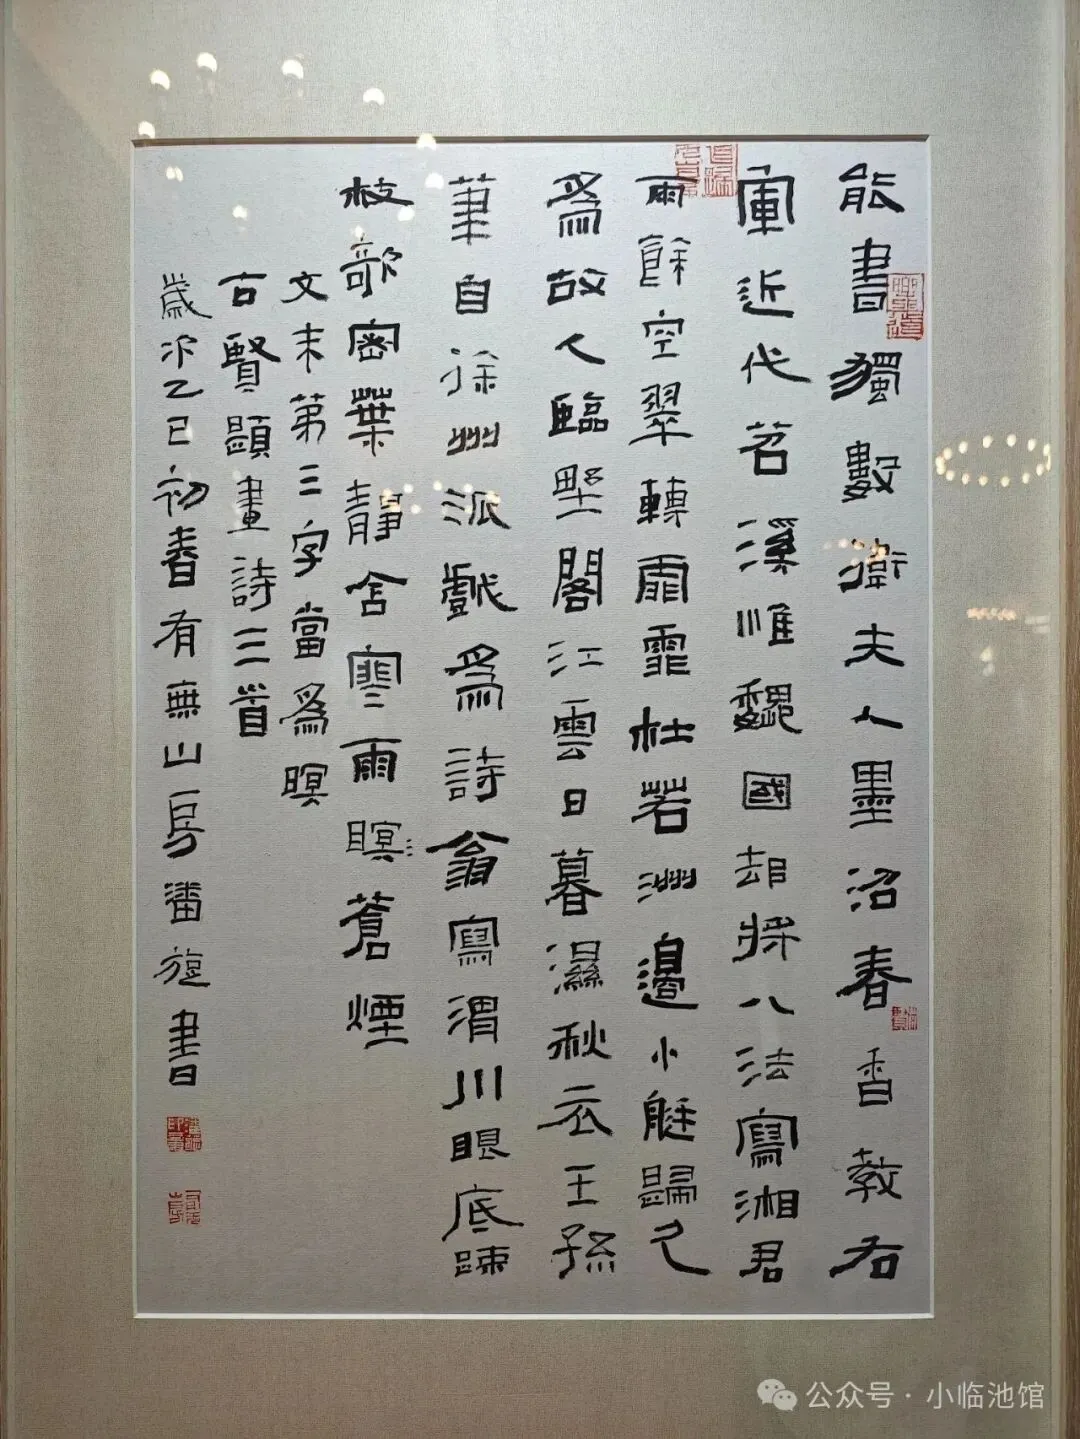 能書獨數衛夫人墨沼春香教右
軍近代苕溪惟魏國却將八法寫湘君
雨餘空翠轉霏霏杜若洲邊小艇歸久
爲故人臨野閣江雲日暮濕秋衣王孫
筆自徐州派戲爲詩翁寫渭川眼底疎
枝歌密葉靜含寒雨瞑蒼煙
文末第三字當爲暝
古賢題畫詩三首
歲次乙巳初春有無山房潘旋書
公众号·小临池馆